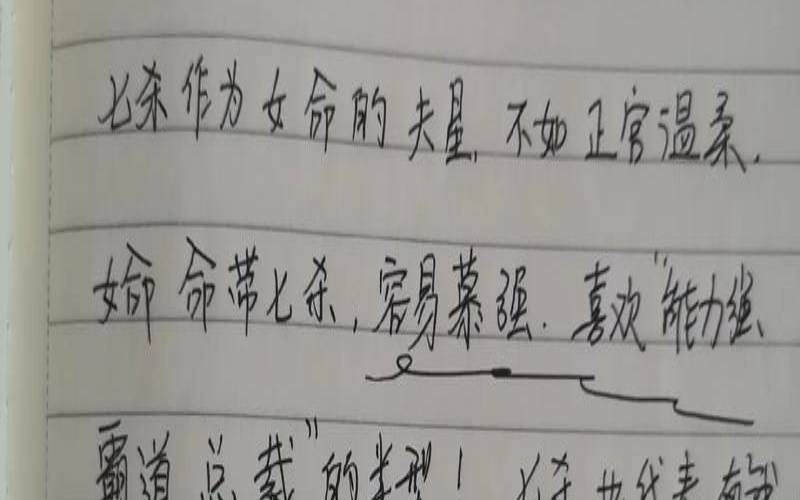 七杀作为女命的夫星,不如正官温柔.
女命命带七杀,容易慕强.喜欢"能力强、
霸道总裁"的类型!七杀也代表有